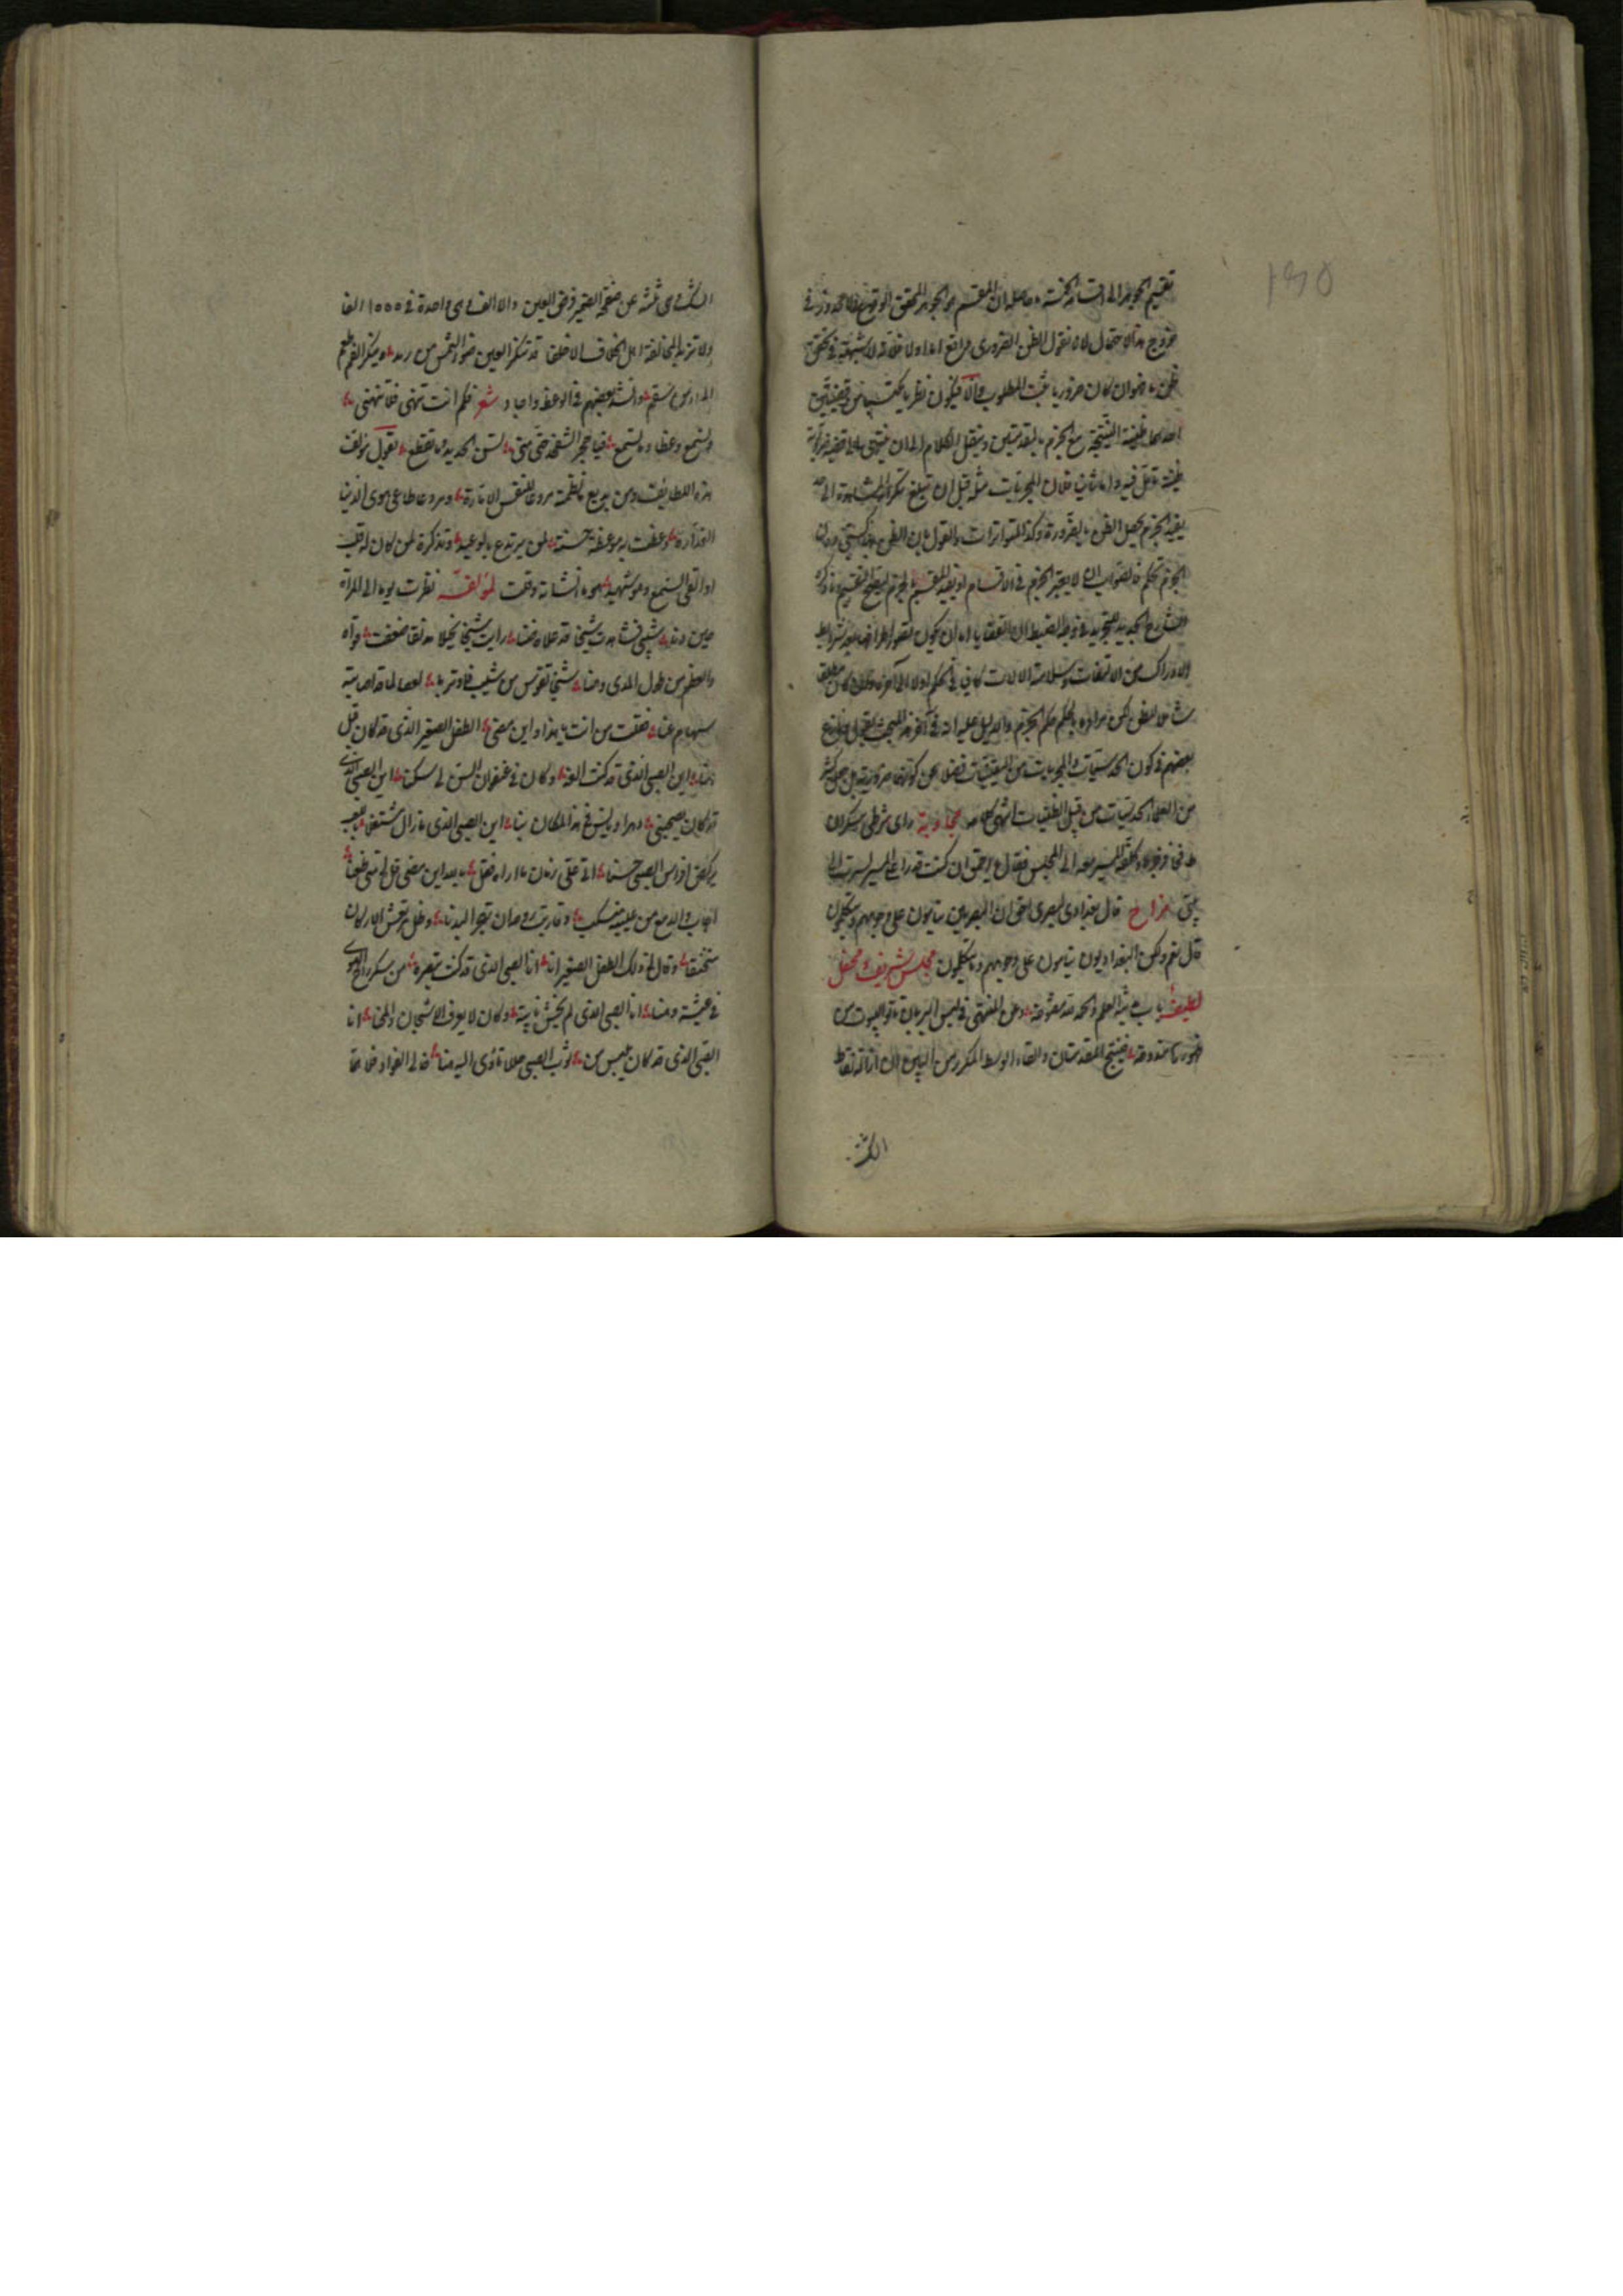 تقسيم الجوهر الى اقسامه الخمسة وحاصله ان المقسم هو الجوهر المحقق الوقوع فلا محذور في
خروج هذا الاحتمال لانا نقول الظن الضرورى واقع اما اولا فلانه لا شبهة في تحقق
ظن ما فهو ان كان ضروريا ثبت المطلوب والا فيكون نظريا يكتسب من قضيتين
احداهما ظنية النتيجة مع الجزم بالمقدمتين وينقل الكلام اليها الى ان ينتهى الى قضية ضرورية
ظنية تأمل فيه واما ثانيا فلان المجربات مثلا قبل ان تبلغ تكرار المشاهدة الى حد
يفيد الجزم يحصل الظن بالضرورة وكذا المتواترات والقول بان الظن
الجزم تحكم فالصواب ان لا يعتبر الجزم في الاقسام او يقيد المقسم بالجزم ليصح التقسيم وما ذكره
الشارح الجديد للتجريد
الادراك من الالتفات وسلامة الالات كاف في الحكم اولا الى آخره وان كان مطلقا
شاملا للظن لكن مراده بالحكم حكم الجزم والدليل عليه انه في آخر هذا المبحث
بعضهم في كون الحدسيات والمجربات من اليقينيات فضلا عن كونها ضرورية بل جعل كثير
من العلماء الحدسيات من قبيل الظنيات انتهى كلامه مجاوبة راى شرطى سكران
فى وكلفه المسير معه الى المجلس فقال يا احمق ان كنت قدرا على المسير لسرت الى
بيتى مزاح قال بغدادى لبصرى احق ان البصريين ينامون على وجوههم ويتكلمون
قال نعم ولكن البغداديون ينامون على وجوههم وما يتكلمون مجلس شريف ومحفل
لطيف باب مدينة العلم والحمد مفتوحة ودهن المنتهى في قميص البرهان تاتوا البيوت من
ظهورها ممدوحة فينتج المقدمتان والقاء الوسط المكرر من البين ان ازالة نقاط
الكثر
الشك هى ثلثة عن صفحة الضمير فرض العين والالف هى واحدة في ١٥٥٥ الفا
ولا تزيد المخالفة اهل الخلاف الا خلفا قد تنكر العين ضوء الشمس من رمد وينكر الفم طعم
الماء من سقم وانشد بعضهم في الوعظ واجاد شعر فكم انت تنهى فلا تنتهى
وتسمع وعظا ولا تسمع فيا حجر الشحذ حتى متى تسن الحديد وما تقطع يقول مؤلف
هذه اللطايف ومن بديع ما نظمته ردعا للنفس الامارة وردعا على هوى الدنيا
الغدارة وعظت به موعظة حسنة لمن يرتدع بالوعيد وتذكرة لمن كان له قلب
او القى السمع وهو شهيد انشاته وقلت لمؤلفه نظرت يوما الى المرآة
حين دنا شيبى فشاهدت شيخا قد علاه ضنا رايت شيخا نحيلا مدنفا ضعفت قواه
والعظم من طول المدى وهنا شيخ تقوس من شيب فاوترها لعصا لما قد اصابته
سهام عنا فقلت من انت يا هذا واين مضى الطفل الصغير الذى قد كان قبل
هنا واين الصبى الذى قد كنت الفه وكان في عنفوان السن لى سكنا اين الصبى الذى
قد كان يصحبنى دهرا ويانس في هذا المكان بنا اين الصبى الذى ما زال مشتغلا بلعب
يركض افراس الصبى حسنا انى على زمان ما اراه فقل بالله اين مضى قل لى متى ظعنا
اجاب والدمع من عينيه منسكب وقاربت روحه ان تهجر البدنا وظل مرتعش الاركان
منخنقا وقال لى ذلك الطفل الصغير انا انا الصبى الذى قد كنت تبصره من سكر راح الهوى
في عيشة وهنا انا الصبى الذى لم يخش نايبة وكان لا يعرف الاشجان والمحنا انا
الصبى الذى قد كان يلبس من ثوب الصبى حللا تاوى اليه منا